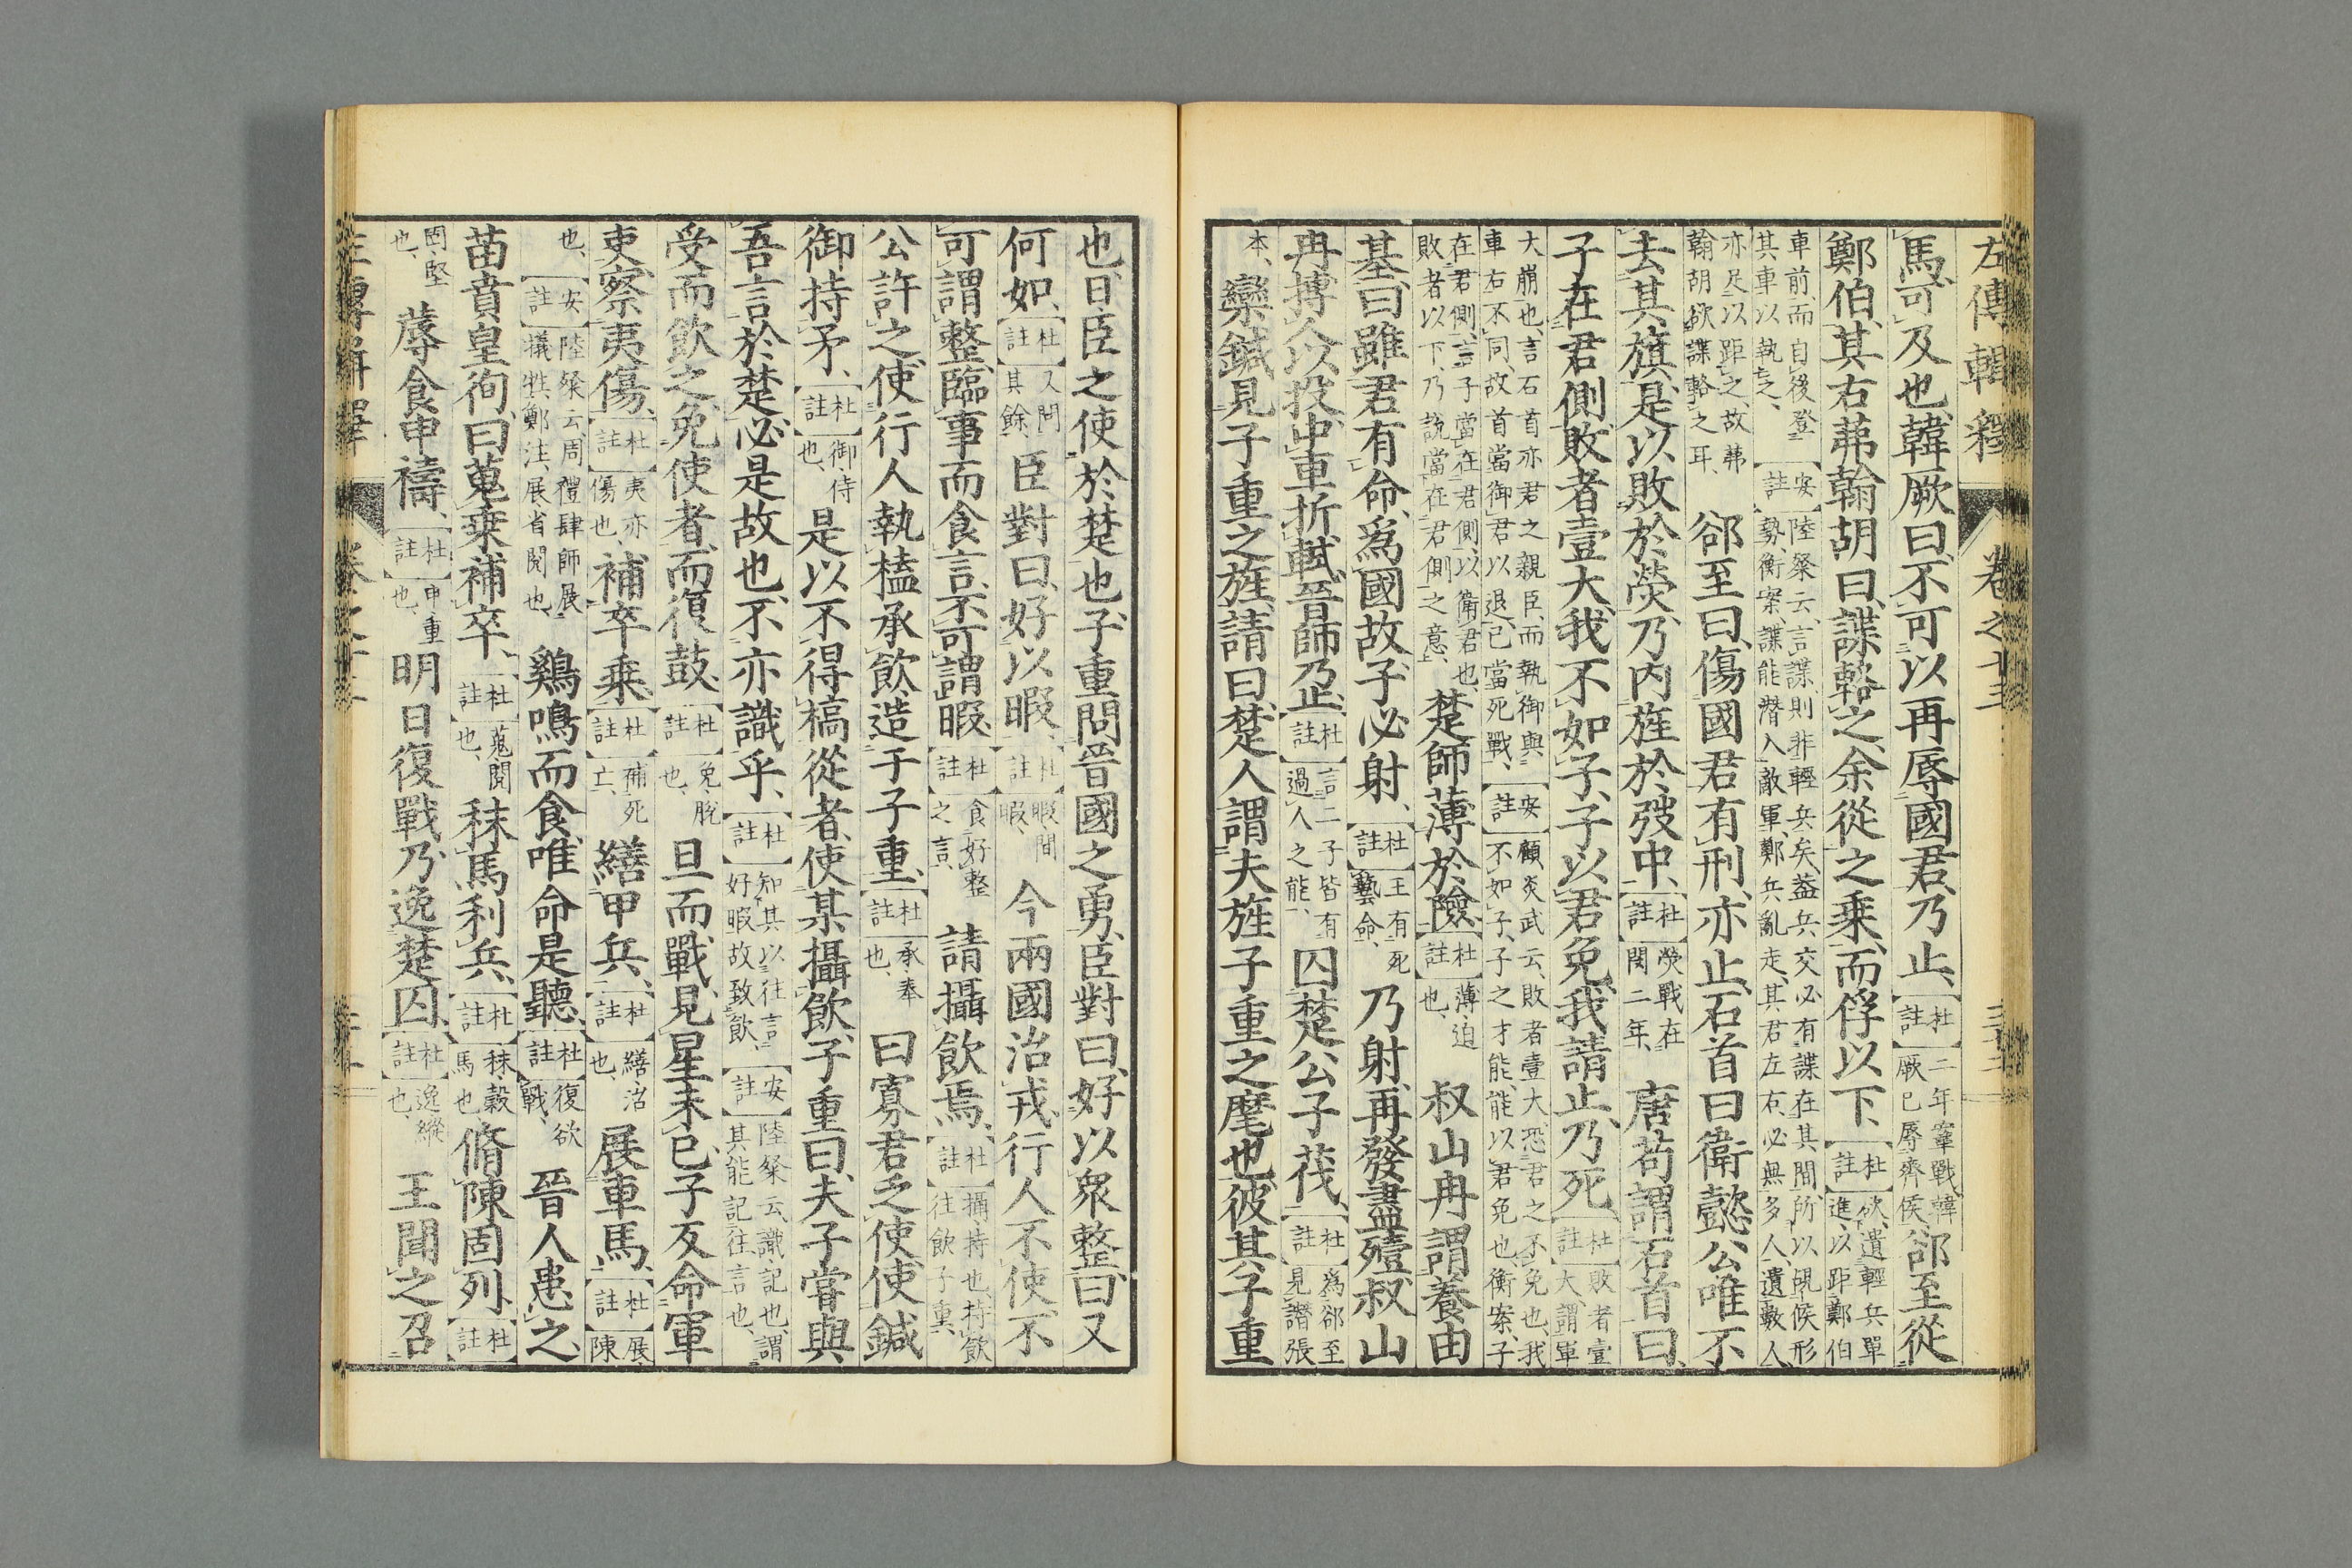 左傳輯釋 卷之十三
馬可及也韓厥曰不可以再辱國君乃止 杜註 二年鞌戰韓厥已辱齊侯 郤至從
鄭伯其右茀翰胡曰諜輅之余從之乘而俘以下 杜註 欲遣輕兵單進以距鄭伯
車前而自後登其車以執之 安註 陸粲云言諜則非輕兵矣蓋兵交必有諜在其間所以覘候形勢衡案諜能潛入敵軍鄭兵亂走其君左右必無多人遺數人
亦足以距之故茀翰胡欲諜輅之耳 郤至曰傷國君有刑亦止石首曰衛懿公唯不
去其旗是以敗於熒乃内旌於弢中 杜註 熒戰在閔二年 唐苟謂石首曰
子在君側敗者壹大我不如子子以君免我請止乃死 杜註 敗者壹大謂軍
大崩也言石首亦君之親臣而執御與車右不同故首當御君以退己當死戰 安註 顧炎武云敗者壹大恐君之不免也我不如子子之才能能以君免也衡案子
在君側言子當在君側以衛君也敗者以下乃說當在君側之意 楚師薄於險 杜註 薄迫也 叔山冉謂養由
基曰雖君有命爲國故子必射 杜註 王有死藝命 乃射再發盡殪叔山
冉搏人以投中車折軾晉師乃止 杜註 言二子皆有過人之能 囚楚公子茷 杜註 爲郤至見譖張
本 欒鍼見子重之旌請曰楚人謂夫旌子重之麾也彼其子重
也日臣之使於楚也子重問晉國之勇臣對曰好以眾整曰又
何如 杜註 又問其餘 臣對曰好以暇 杜註 暇閒暇 今兩國治戎行人不使不
可謂整臨事而食言不可謂暇 杜註 食好整之言 請攝飲焉 杜註 攝持也持飲往飲子重
公許之使行人執榼承飲造于子重 杜註 承奉也 曰寡君乏使使鍼
御持矛 杜註 御侍也 是以不得犒從者使某攝飲子重曰夫子嘗與
吾言於楚必是故也不亦識乎 杜註 知其以往言好暇故致飲 安註 陸粲云識記也謂其能記往言也
受而飲之免使者而復鼓 杜註 免脫也 旦而戰見星未已子反命軍
吏察夷傷 杜註 夷亦傷也 補卒乘 杜註 補死亡 繕甲兵 杜註 繕治也 展車馬 杜註 展陳
也 安註 陸粲云周禮肆師展犧牲鄭注展省閱也 鷄鳴而食唯命是聽 杜註 復欲戰 晉人患之
苗賁皇徇曰蒐乘補卒 杜註 蒐閱也 秣馬利兵 杜註 秣穀馬也 脩陳固列 杜註
固堅也 蓐食申禱 杜註 申重也 明日復戰乃逸楚囚 杜註 逸縱也 王聞之召